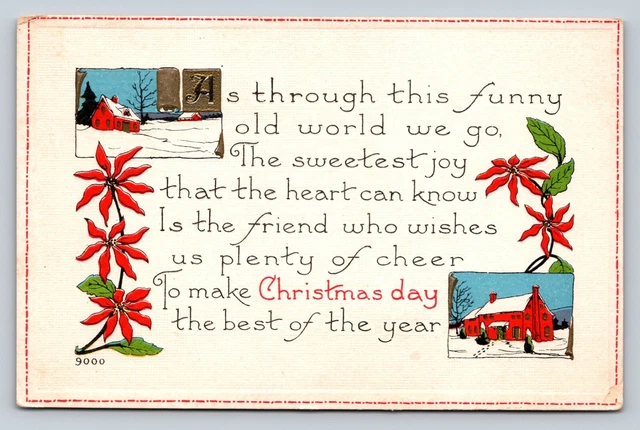 As through this funny
old world we go,
The sweetest joy
that the heart can know
Is the friend who wishes
us plenty of cheer
To make Christmas day
the best of the year
9000